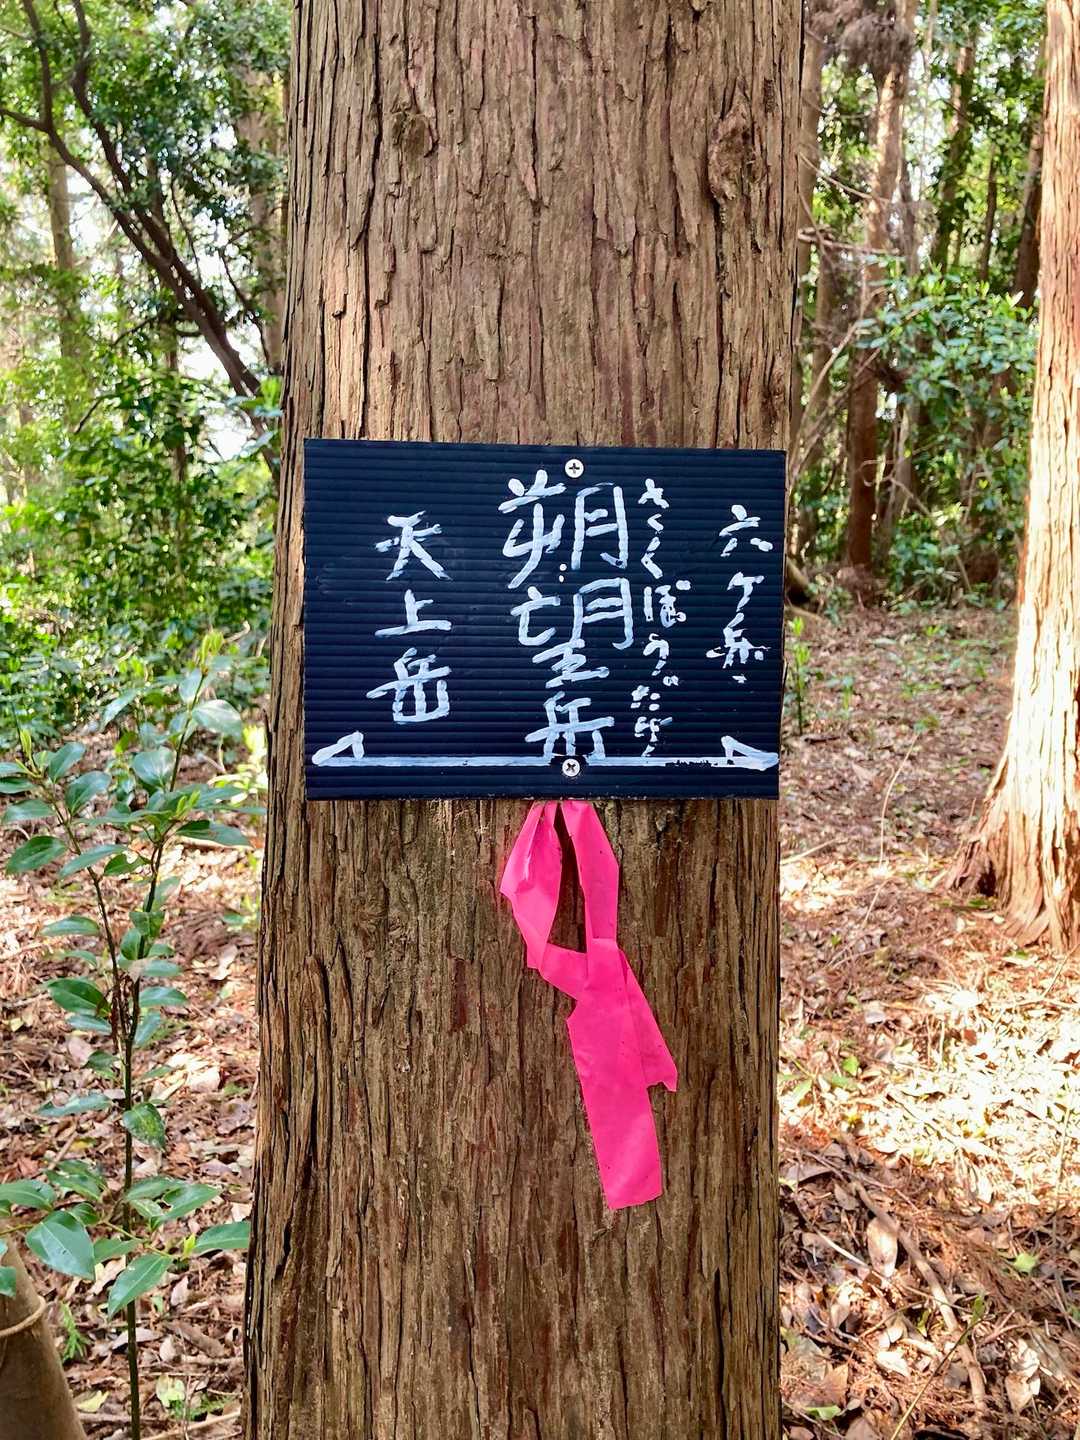 六ケ岳
さくぼうだけ
朔望岳
天上岳